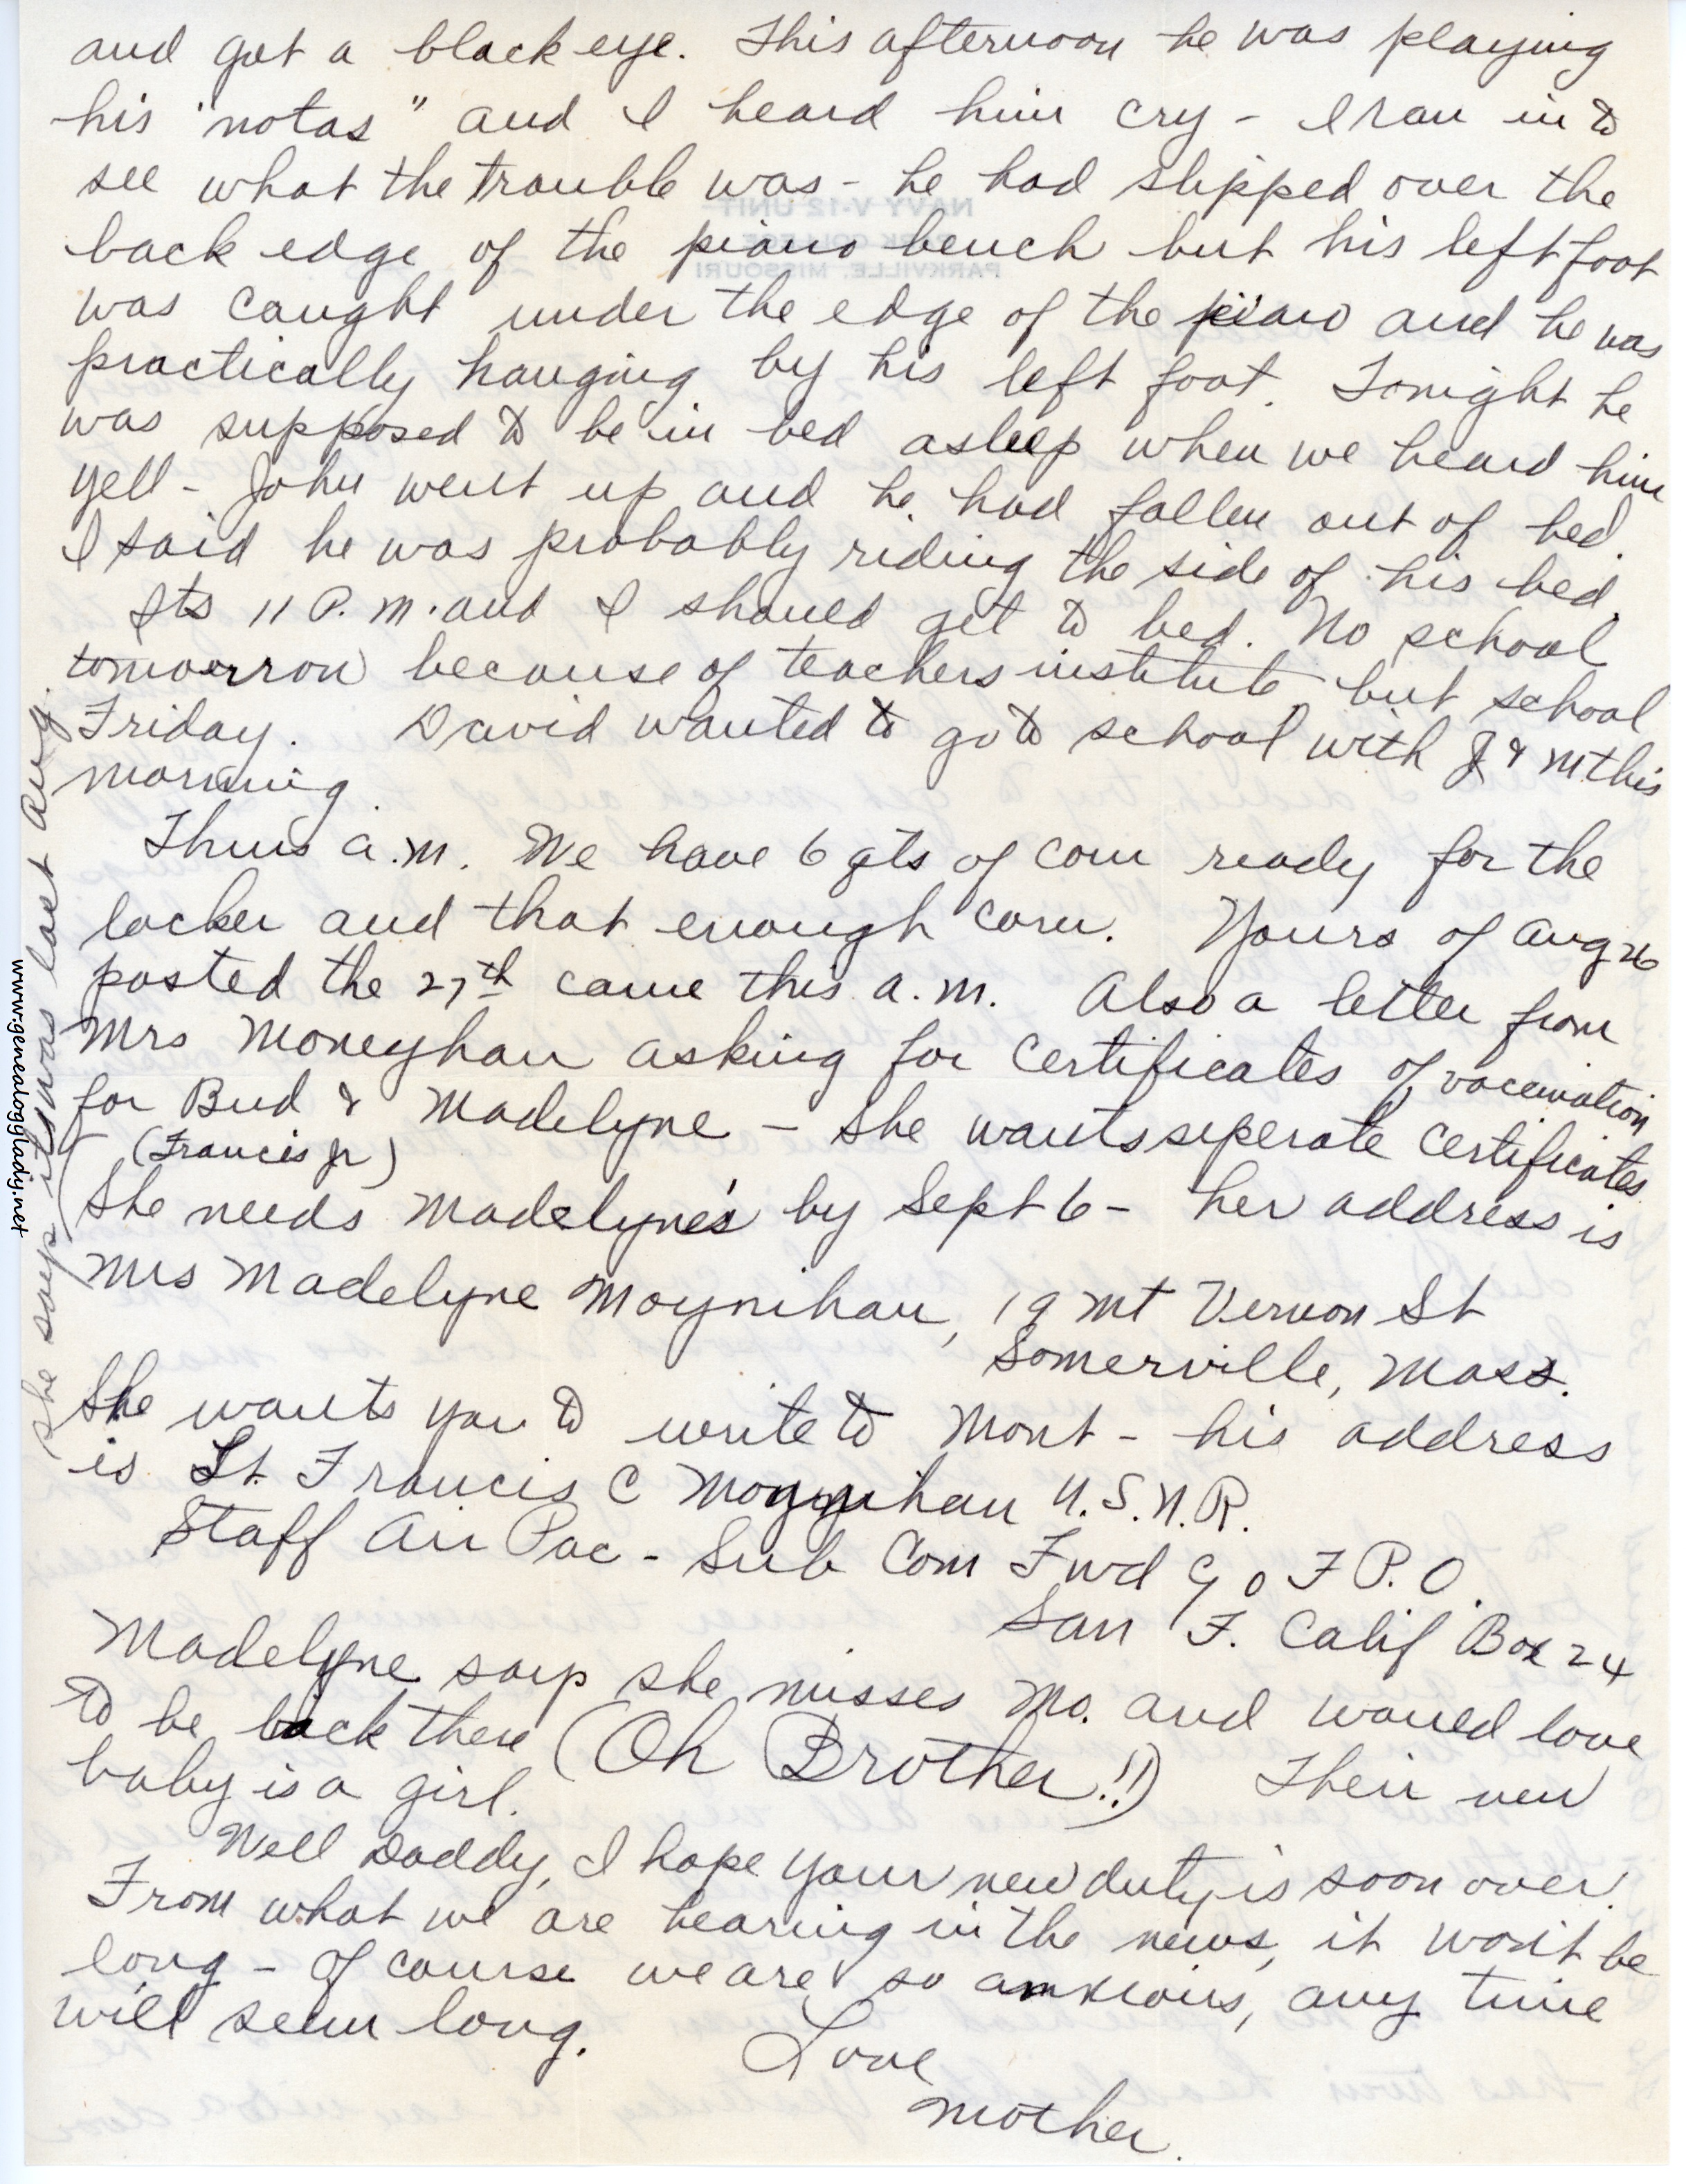 and got a black eye. This afternoon he was playing
his "notas" and I heard him cry - I ran in to
see what the trouble was - he had slipped over the
back edge of the piano bench but his left foot
was caught under the edge of the piano and he was
practically hanging by his left foot. Tonight he
was supposed to be in bed asleep when we heard him
yell - John went up and he had fallen out of bed.
I said he was probably riding the side of his bed.
Its 11 P.M. and I should get to bed. No school
tomorrow because of teachers institute but school
Friday. David wanted to go to school with J & M this
morning.
Thurs a.m. We have 6 qts of corn ready for the
locker and that enough corn. Yours of Aug 26
posted the 27th came this a.m. Also a letter from
Mrs Moneyhan asking for certificates of vaccination
for Bud & Madelyne - She wants seperate certificates
(Francis Jr)
She needs Madelyne's by Sept 6 - her address is
Mrs Madelyne Moynihan, 19 Mt Vernon St
Somerville, Mass.
She wants you to write to Mont - his address
is Lt. Francis C Moynihan U.S.N.R.
Staff Air Pac - Sub Com Fwd C/o F P.O.
San F. Calif Box 24
Madelyne says she misses Mo. and would love
to be back there (Oh Brother!!) Their new
baby is a girl.
Well Daddy, I hope your new duty is soon over.
From what we are hearing in the news, it won't be
long - of course we are so anxious, any time
will seem long.
Love
Mother.
she says it was last Aug.
www.genealogyladig.net
NAVY V-12 UNIT
PARK COLLEGE
PARKVILLE, MISSOURI